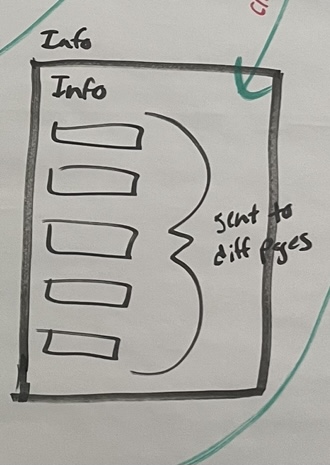 Info
Info
sent to
diff pges